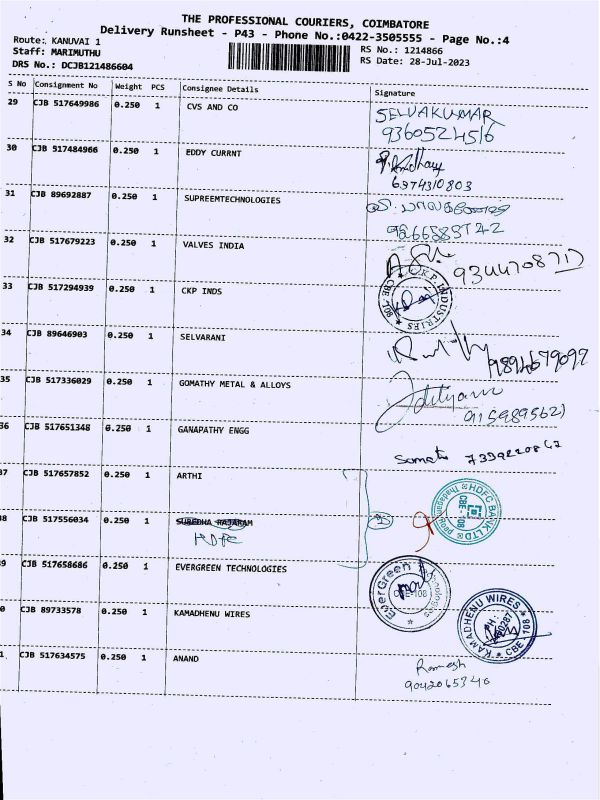 THE PROFESSIONAL COURIERS, COIMBATORE
Delivery Runsheet - P43 - Phone No.:0422-3505555 - Page No.:4
Route: KANUVAI 1
RS No.: 1214866
Staff: MARIMUTHU
RS Date: 28-Jul-2023
DRS No.: DCJB121486604
S No Consignment No Weight PCS Consignee Details Signature
29 CJB 517649986 0.250 1 CVS AND CO SELVAKUMAR
9360524516
30 CJB 517484966 0.250 1 EDDY CURRNT
6374310803
31 CJB 89692887 0.250 1 SUPREEMTECHNOLOGIES
32 CJB 517679223 0.250 1 VALVES INDIA
33 CJB 517294939 0.250 1 CKP INDS C.K.P. INDUSTRIES CBE
34 CJB 89646903 0.250 1 SELVARANI
9894679097
35 CJB 517336029 0.250 1 GOMATHY METAL & ALLOYS
36 CJB 517651348 0.250 1 GANAPATHY ENGG
37 CJB 517657852 0.250 1 ARTHI
38 CJB 517556034 0.250 1 SUREDHA RAJARAM HDFC BANK LTD CBE - 108
HDFC
39 CJB 517658686 0.250 1 EVERGREEN TECHNOLOGIES EverGreen Technologies CBE-108
40 CJB 89733578 0.250 1 KAMADHENU WIRES KAMADHENU WIRES CBE 108
41 CJB 517634575 0.250 1 ANAND Ramesh
9042065346